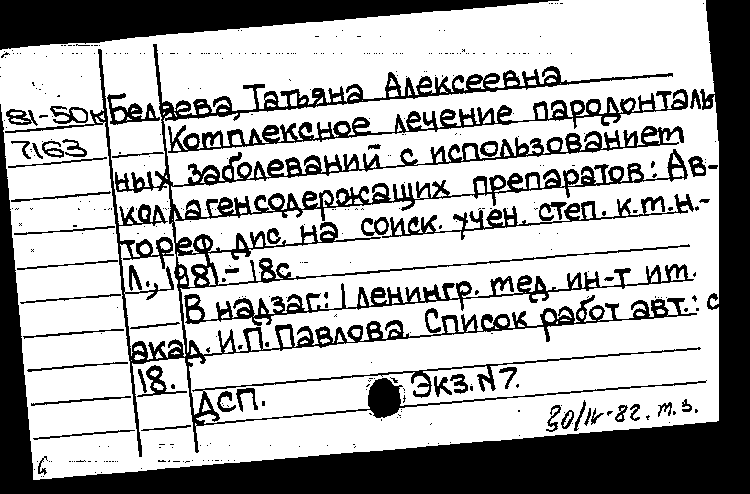 81-50к Беляева, Татьяна Алексеевна.
7163 Комплексное лечение пародонталь
ных заболеваний с использованием
коллагенсодержащих препаратов: Ав-
тореф. дис. на соиск. учен. степ. к.т.н.-
Л., 1981.- 18с.
В надзаг.: 1 Ленингр. тед. ин-т ит.
акад. И.П. Павлова. Список работ авт.: с
18.
ДСП. Экз. №7.
т.з.